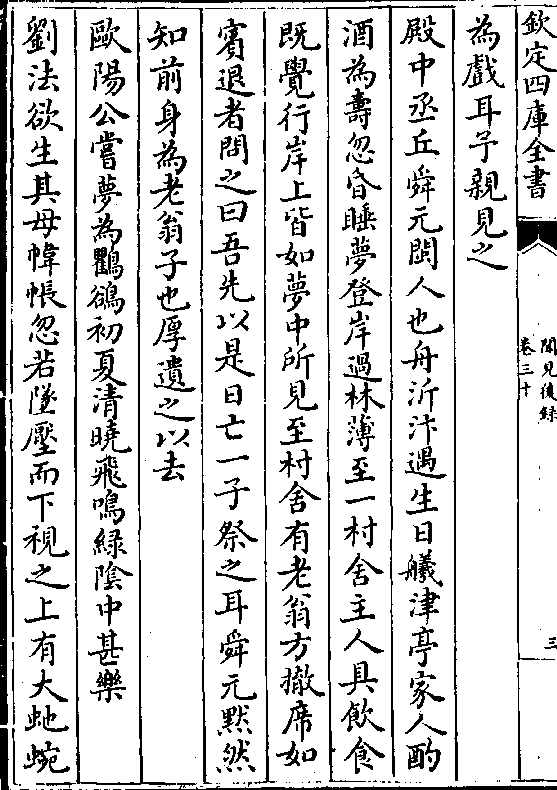 欽定四庫全書
聞見後錄
卷三十
三
為戲耳予親見之
殿中丞丘舜元閩人也舟泝汴遇生日艤津亭家人酌
酒為壽忽昏睡夢登岸過林薄至一村舍主人具飲食
既覺行岸上皆如夢中所見至村舍有老翁方撤席如
賓退者問之曰吾先以是日亡一子祭之耳舜元黙然
知前身為老翁子也厚遺之以去
歐陽公嘗夢為鸜鵒初夏清曉飛鳴綠陰中甚樂
劉法欲生其母幃帳忽若墜壓而下視之上有大虵蜿